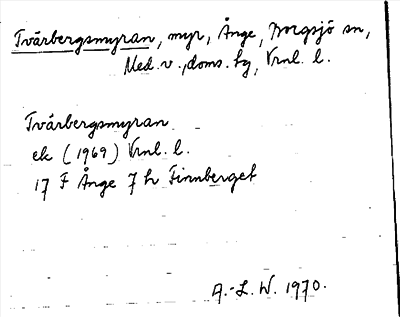 Tvärbergsmyran, myr, Ånge, Borgsjö sn,
Med. v., doms. hg, Vrnl. l.
Tvärbergsmyran
ek (1969) Vrnl. l.
17 F Ånge 7 h Finnberget
A.-L. W. 1970.